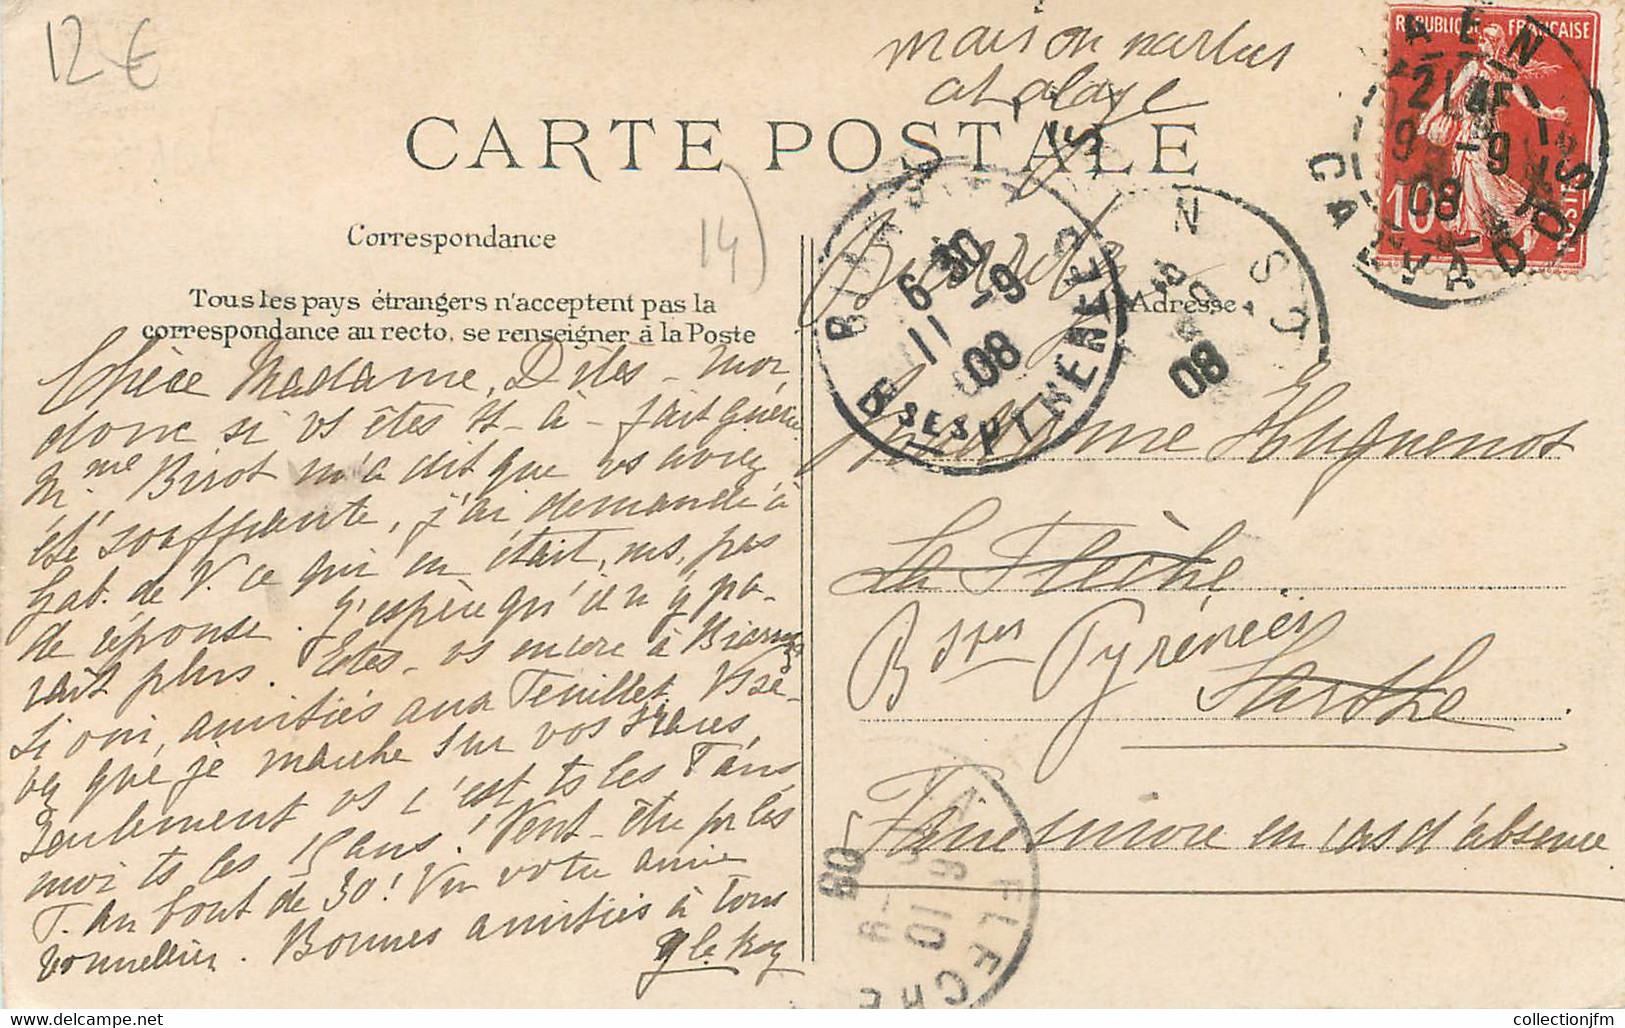 12€
maison
CARTE POSTALE
14)
Correspondance
Tous les pays étrangers n'acceptent pas la
correspondance au recto, se renseigner à la Poste
Adresse
RÉPUBLIQUE FRANÇAISE
10
POSTES
CAEN
CALVADOS
9 -9
08
6 30
11 -9
08
BSES PYRENEES
08
Chère Madame, Dites-moi
donc si vs êtes tt-à-fait guérie
Mme Birot m'a dit que vs aviez
été souffrante, j'ai demandé à
Gab. de V. ce qui en était, ms, pas
de réponse. J'espère qu'il n'y pa-
rait plus. Etes-vs encore à
Si oui, amitiés aux Feuillet. Vs
que je marche sur vos traces,
seulement vs c'est ts les ans,
moi ts les 15 ans! Vent-être
au bout de 30! votre amie
. Bonnes amitiés à tous
Y le Roy
Madame Huguenot
La Flèche
Bsses Pyrénées
Sarthe
Faire suivre en cas d'absence
LA FLECHE
10 -9
08
collectionjfm